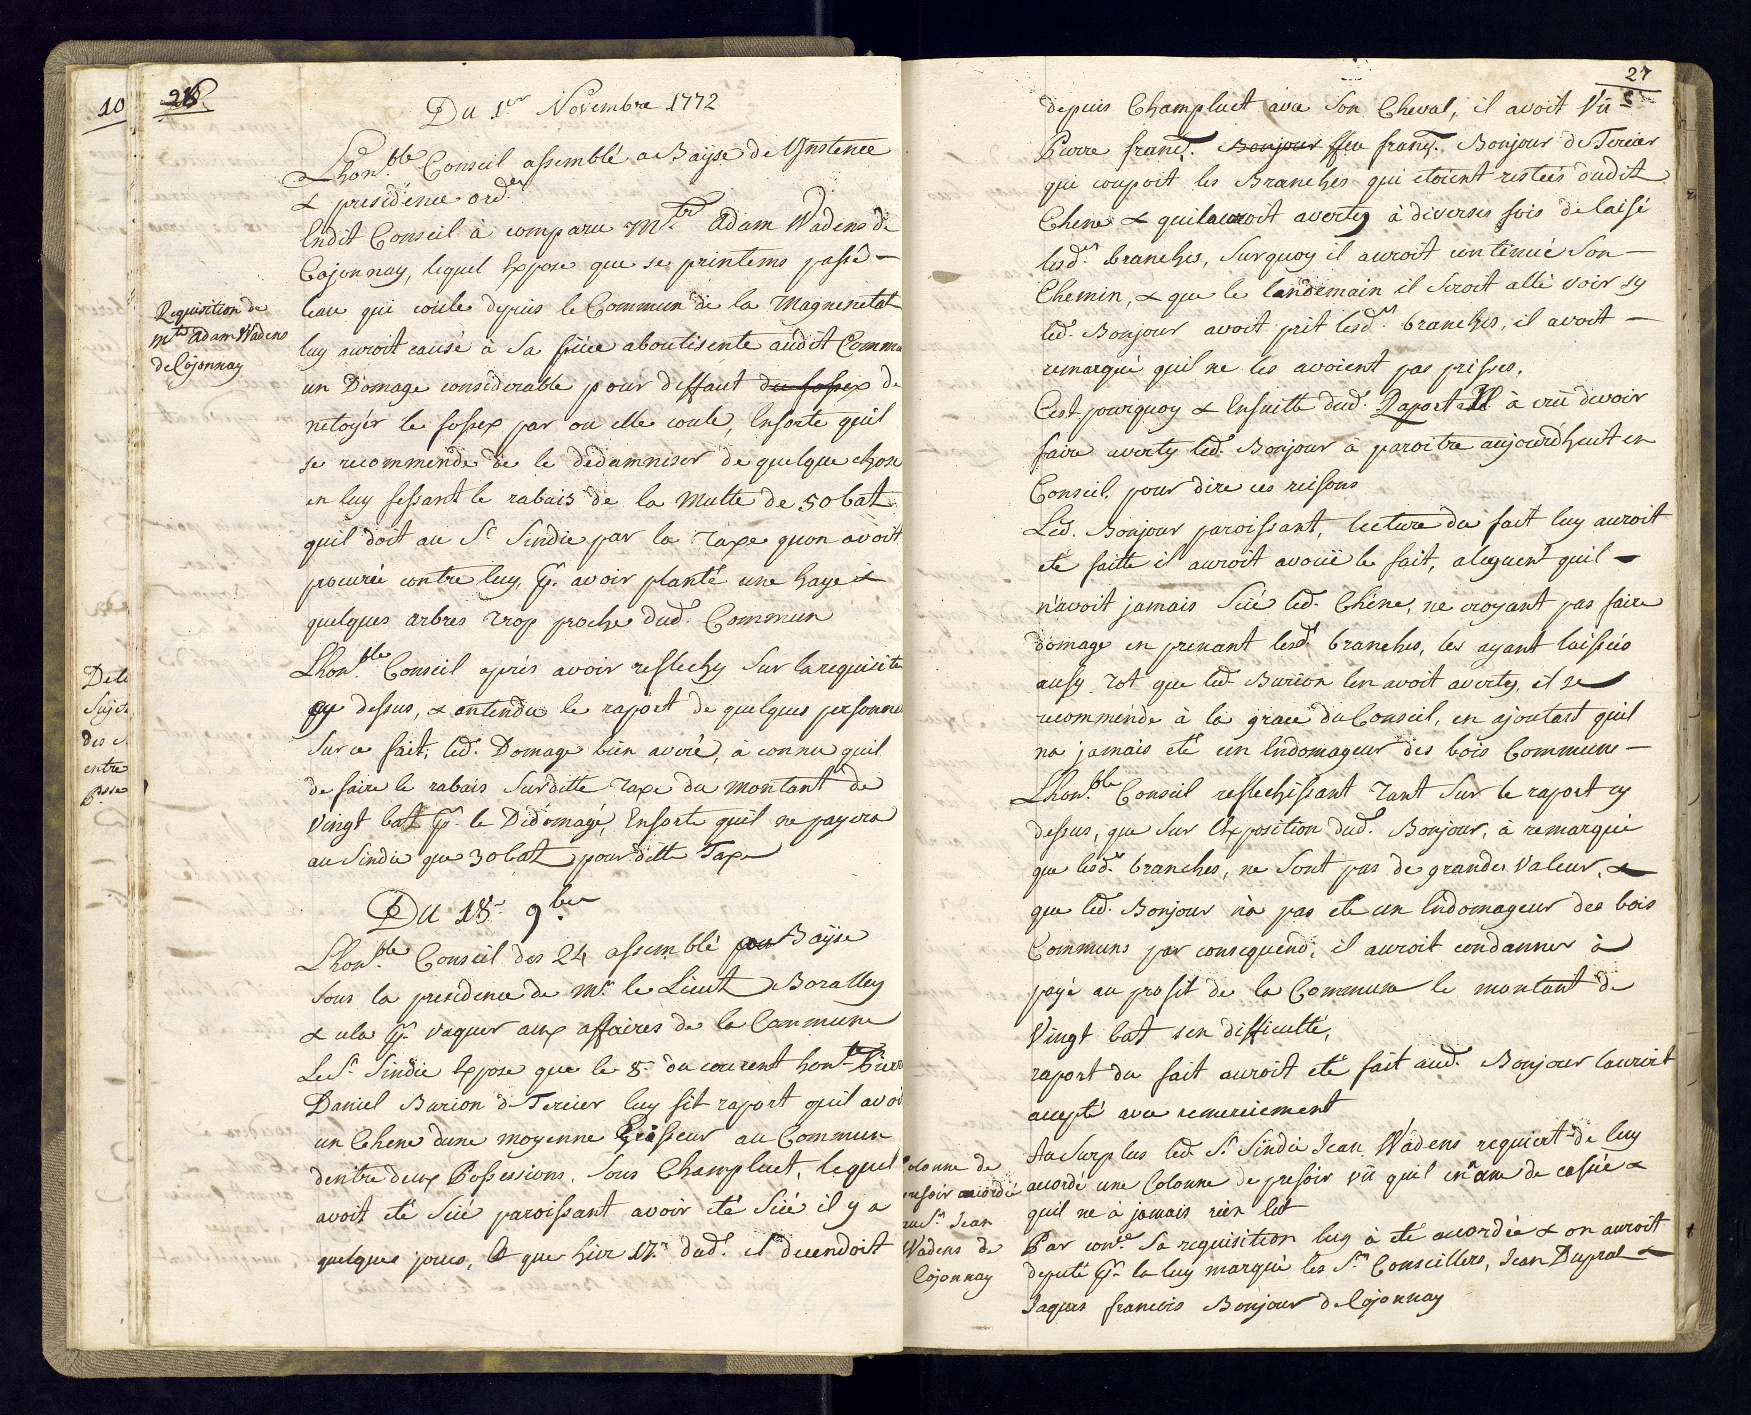 10
Du 1er Novembre 1772
Lhon.ble Conseil assemblé a Bayse de
& presidence ord.re
Endit Conseil à comparu M.tre Adam Wadens de
Cojonnay, lequel Expose que se printems passé –
leau qui coule depuis le Commun de la Magnenetat
luy auroit causé à Sa aboutisente audit Commu
un Domage considerable pour deffaut du fossex de
netoÿér le fossex par ou elle coule, Ensorte quil
se recommende de le dédamniser de quelque chose
en luy fessant le rabais de la Multe de 50 bat
quil doit au Sr Sindic par la Taxe quon avoit
procurée contre luy, pr. avoir planté une haye &
quelques arbres trop proche dud. Commun
Lhon.ble Conseil aprés avoir reflechy Sur la requisit
cy dessus, & entendu le raport de quelques personne
Sur ce fait, led. Domage bien avoré, à connu quil
de faire le rabais Surditte Taxe du montant de
Vingt bat pr. le Dédomagé, Ensorte quil ne payera
au Sindic que 30 bat pour ditte Taxe
Requisition de
Mtre Adam Wadens
de Cojonnay
Du 18e 9bre
Lhon.ble Conseil des 24 assemblé Bayse
Sous la presidence de Mr. le Lieut Boralley
& cela pr. vaquer aux affaires de la Commune
Le Sr. Sindic Expose que le 8e du courent hon.te Pierr
Daniel Burion de Tercier luy fit raport quil avoi
un Chene dune moyenne Grosseur au Commun
dentre deux Possessions, Sous Champluet, lequel
avoit été Scié paroissant avoir été Scié il y a
quelques jours, & que hier 17e dud. il decendoit
Dele
Sujet
des
entre
27
depuis Champluet avec Son Cheval, il avoit Vü
Pierre franç. Bonjour ffeu franç. Bonjour de Tercier
qui coupoit les Branches qui étoient restées dudit
Chene & quil auroit averty à diverses fois de laisé
lesd.es branches, Surquoy il auroit continué Son –
Chemin, & que le landemain il Seroit allé voir sy
led. Bonjour avoit prit lesd.es branches, il avoit –
remarqué quil ne les avoient pas prisses,
Cest pourquoy & Ensuitte dud. Raport Il à crü devoir
faire averty led. Bonjour à paroitre aujourdhuit en
Conseil, pour dire ces reisons
Led. Bonjour paroissant, lecture du fait luy auroit
été faitte il auroit avoüé le fait, aleguent quil –
n'avoit jamais Scié led. Chêne, ne croyant pas faire
domage en prenant lesd. branches, les ayant laissées
ausy tot que led Burion len avoit averty, il se
recommende à la grace du Conseil, en ajoutant quil
na jamais eté un Endomageur des bois Communs –
Lhon.ble Conseil reflechissant Tant Sur le raport cy
dessus, que Sur lExposition dud. Bonjour, à remarqué
que lesd.es branches, ne Sont pas de grandes Valeur, &
que led. Bonjour n'a pas été un Endomageur des bois
Communs par consequend, il auroit condanner à
payé au profit de la Commune le montant de
Vingt bat sen difficulté,
raport du fait auroit été fait aud. Bonjour lauroit
accepté avec remerciement
Au Surplus led Sr. Sindic Jean Wadens requiert de luy
accordé une Colonne de presoir vü quil en à une de cassée &
quil ne à jamais rien eut
Par con.ce Sa requisition luy à eté accordée & on auroit
deputé pr. la luy marqué les Srs Conseillers, Jean Duprat &
Jaques francois Bonjour de Cojonnay
olonne de
resoir accordé
au Sr. Jean
Wadens de
Cojonnay